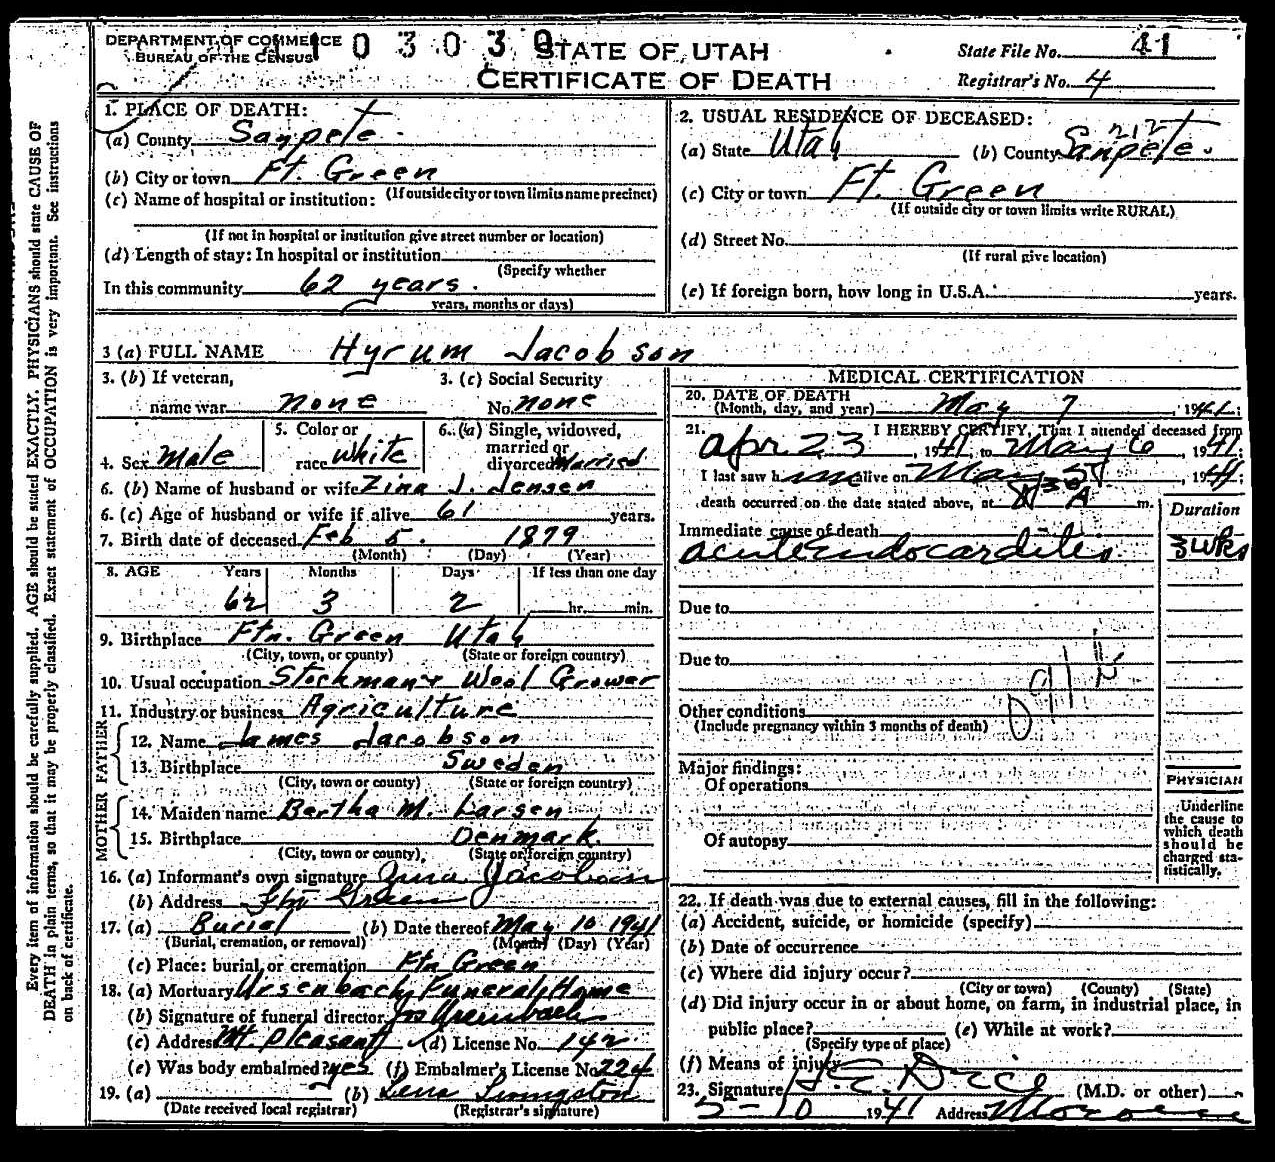 DEPARTMENT OF COMMERCE
BUREAU OF THE CENSUS
STATE OF UTAH
CERTIFICATE OF DEATH
State File No. 41
Registrar's No. 4
1. PLACE OF DEATH:
(a) County Sanpete
(b) City or town Ft. Green
(If outside city or town limits name precinct)
(c) Name of hospital or institution:
(If not in hospital or institution give street number or location)
(d) Length of stay: In hospital or institution
(Specify whether
In this community 62 years.
years, months or days)
2. USUAL RESIDENCE OF DECEASED:
212
(a) State Utah (b) County Sanpete.
(c) City or town Ft. Green
(If outside city or town limits write RURAL)
(d) Street No.
(If rural give location)
(e) If foreign born, how long in U.S.A. years.
3 (a) FULL NAME Hyrum Jacobson
3. (b) If veteran, name war none
3. (c) Social Security No. none
4. Sex Male
5. Color or race White
6. (a) Single, widowed, married or divorced Married
6. (b) Name of husband or wife Zina J. Jensen
6. (c) Age of husband or wife if alive 61 years.
7. Birth date of deceased Feb 5. 1879
(Month) (Day) (Year)
8. AGE Years Months Days If less than one day
62 3 2 hr. min.
9. Birthplace Ftn. Green Utah
(City, town, or county) (State or foreign country)
10. Usual occupation Stockman & Wool Grower
11. Industry or business Agriculture
FATHER
12. Name James Jacobson
13. Birthplace Sweden
(City, town or county) (State or foreign country)
MOTHER
14. Maiden name Bertha M. Larsen
15. Birthplace Denmark.
(City, town or county) (State or foreign country)
16. (a) Informant's own signature Zina Jacobson
(b) Address Ftn Green
17. (a) Burial (b) Date thereof May 10 1941
(Burial, cremation, or removal) (Month) (Day) (Year)
(c) Place: burial or cremation Ftn Green
18. (a) Mortuary Ursenbach Funeral Home
(b) Signature of funeral director Ursenbach
(c) Address Mt Pleasant (d) License No. 142
(e) Was body embalmed? yes (f) Embalmer's License No. 224
19. (a) (b) Lena Livingston
(Date received local registrar) (Registrar's signature)
MEDICAL CERTIFICATION
20. DATE OF DEATH
(Month, day, and year) May 7, 1941;
21. I HEREBY CERTIFY, That I attended deceased from
Apr 23, 1941, to May 6, 1941;
I last saw him alive on May 5, 1941;
death occurred on the date stated above, at 8:30 A m.
Duration
Immediate cause of death
acute endocarditis 3 wks
Due to
Due to
Other conditions
(Include pregnancy within 3 months of death)
Major findings:
Of operations
Of autopsy
PHYSICIAN
Underline
the cause to
which death
should be
charged sta-
tistically.
22. If death was due to external causes, fill in the following:
(a) Accident, suicide, or homicide (specify)
(b) Date of occurrence
(c) Where did injury occur?
(City or town) (County) (State)
(d) Did injury occur in or about home, on farm, in industrial place, in
public place? (e) While at work?
(Specify type of place)
(f) Means of injury
23. Signature (M.D. or other)
5-10 1941 Address Moroni
Every item of information should be carefully supplied. AGE should be stated EXACTLY. PHYSICIANS should state CAUSE OF
DEATH in plain terms, so that it may be properly classified. Exact statement of OCCUPATION is very important. See instructions
on back of certificate.